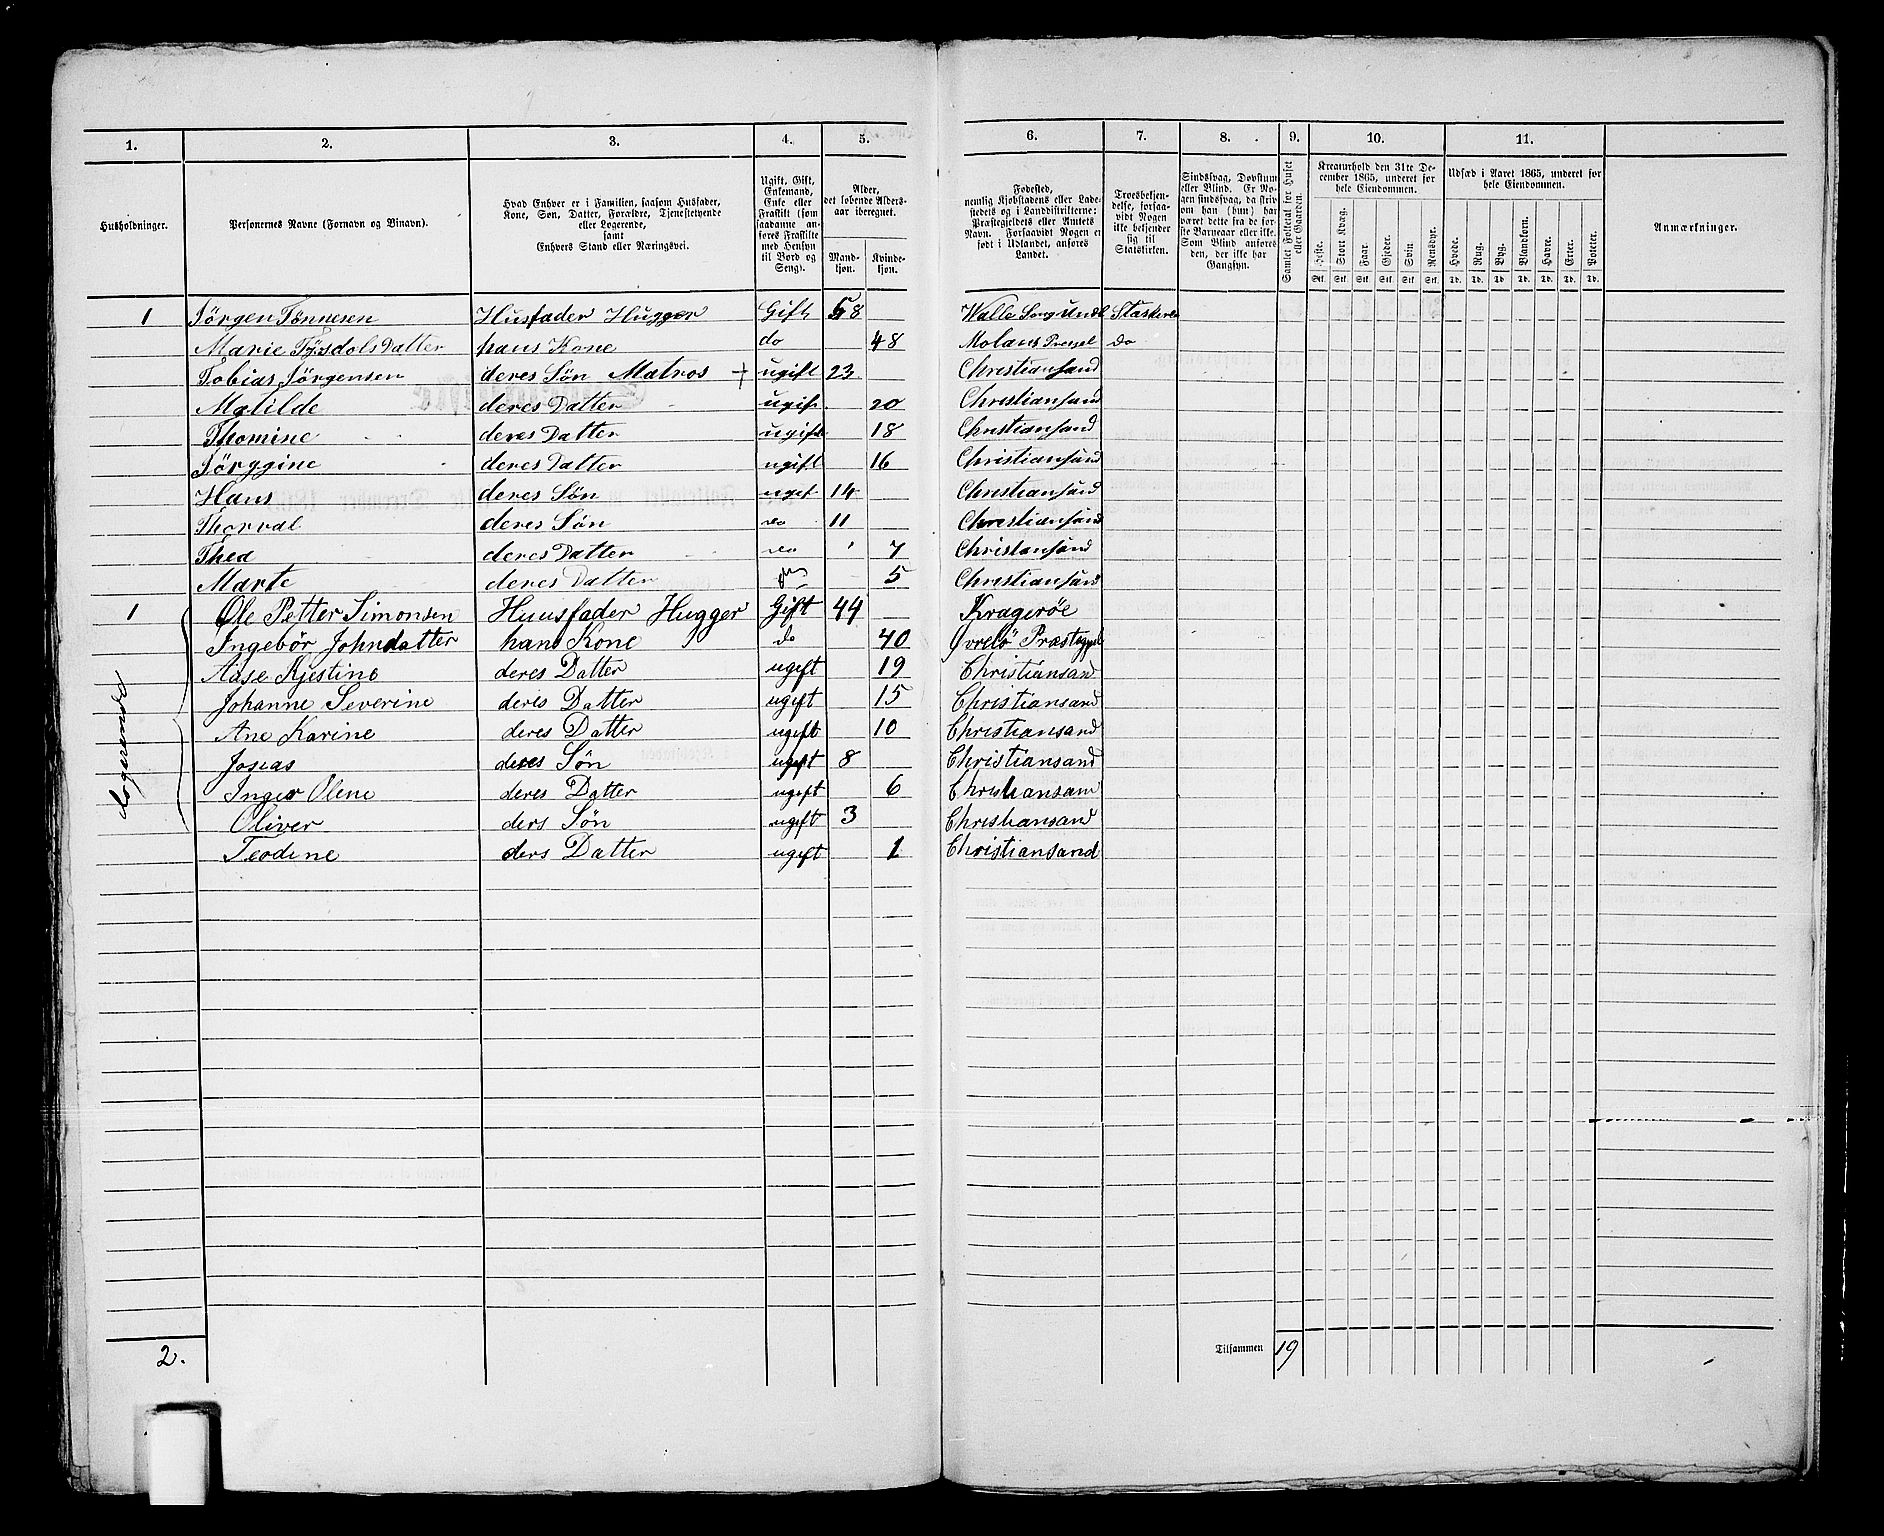 1. 2. 3. 4. 5. 6. 7. 8. 9. 10. 11.
Husholdninger.
Personernes Navne (Fornavn og Binavn).
Hvad Enhver er i Familien, saasom Husfader, Kone, Søn, Datter, Forældre, Tjenestetyende eller Logerende, samt Enhvers Stand eller Næringsvei.
Ugift, Gift, Enkemand, Enke eller Fraskilt (som saadanne anføres Fraskilte med Hensyn til Bord og Seng).
Alder, det løbende Aldersaar iberegnet.
Mandkjøn. Kvindekjøn.
Fødested, nemlig Kjøbstadens eller Ladestedets og i Landdistrikterne: Præstegjeldets eller Amtets Navn. Forsaavidt Nogen er født i Udlandet, anføres Landet.
Troesbekjendelse, forsaavidt Nogen ikke bekjender sig til Statskirken.
Sindssvag, Døvstum eller Blind. Er Nogen sindssvag, da skrives om han (hun) har været dette fra de første Barneaar eller ikke. Som Blind anføres den, der ikke har Gangsyn.
Samlet Folketal for Huset eller Gaarden.
Kreaturhold den 31te December 1865, underet for hele Eiendommen.
Heste. Stort Kvæg. Faar. Gjeder. Svin Rensdyr.
Udsæd i Aaret 1865, underet for hele Eiendommen.
Hvede. Rug. Byg. Blandkorn. Havre. Erter. Poteter.
Anmærkninger.
Stk. Stk. Stk. Stk. Stk. Stk. Td. Td. Td. Td. Td. Td. Td.
1 Jörgen Tönnesen Husfader Hugger Gift 58 Walle
Marie Tysdols Datter hans Kone do 48 do
Tobias Jörgensen deres Søn Matros + ugift 23 Christiansand
Matilde deres Datter ugift 20 Christiansand
Thomine deres Datter ugift 18 Christiansand
Jörggine deres Datter ugift 16 Christiansand
Hans deres Søn ugift 14 Christiansand
Thorval deres Søn do 11 Christiansand
Thea deres Datter do 7 Christansand
Marte deres Datter 5 Christiansand
1 Ole Petter Simonsen Huusfader Hugger Gift 44 Kragerøe
Ingebör Johndatter hans Kone do 40 Øvrebö
Aase Kjestine deres Datter ugift 19 Christiansand
Johanne Severine deres Datter ugeft 15 Christiansand
Ane Karine deres Datter ugeft 10 Christiansand
Josias deres Søn ugeft 8 Christiansand
Inger Olene deres Datter ugeft 6 Christiansand
Oliver ders Søn ugeft 3 Christiansand
Teodine ders Datter ugeft 1 Christiansand
logerende
2. Tilsammen 19